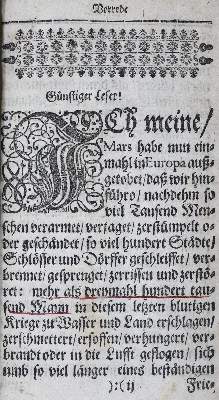 Vorrede
Günstiger Leser!
ICh meine/
Mars habe nun ein-
mahl in Europa auß-
getobet/ daß wir hin-
führo/ nachdehm so
viel Tausend Men-
schen verarmet/ verjaget/ zerstümpelt o-
der geschändet/ so viel hundert Städte/
Schlösser und Dörffer geschleiffet/ ver-
brennet/ gesprenget/ zerrissen und zerstö-
ret: mehr als dreymahl hundert tau-
send Mann in diesem letzten blutigen
Kriege zu Wasser und Land erschlagen/
zerschmettert/ ersoffen/ verhungert/ ver-
brandt oder in die Lufft geflogen/ sich
nunb so viel länger eines beständigen
):( ij Frie-